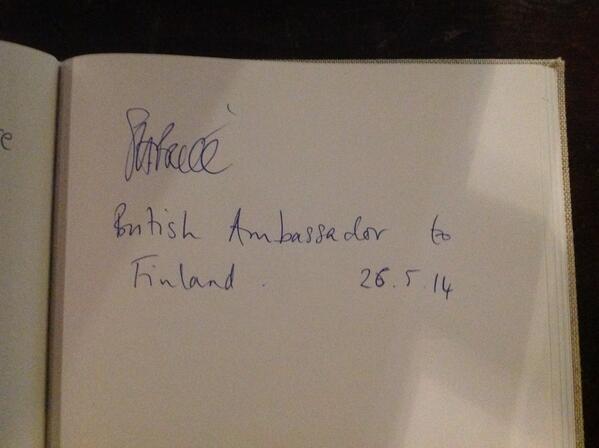 British Ambassador to
Finland. 26.5.14